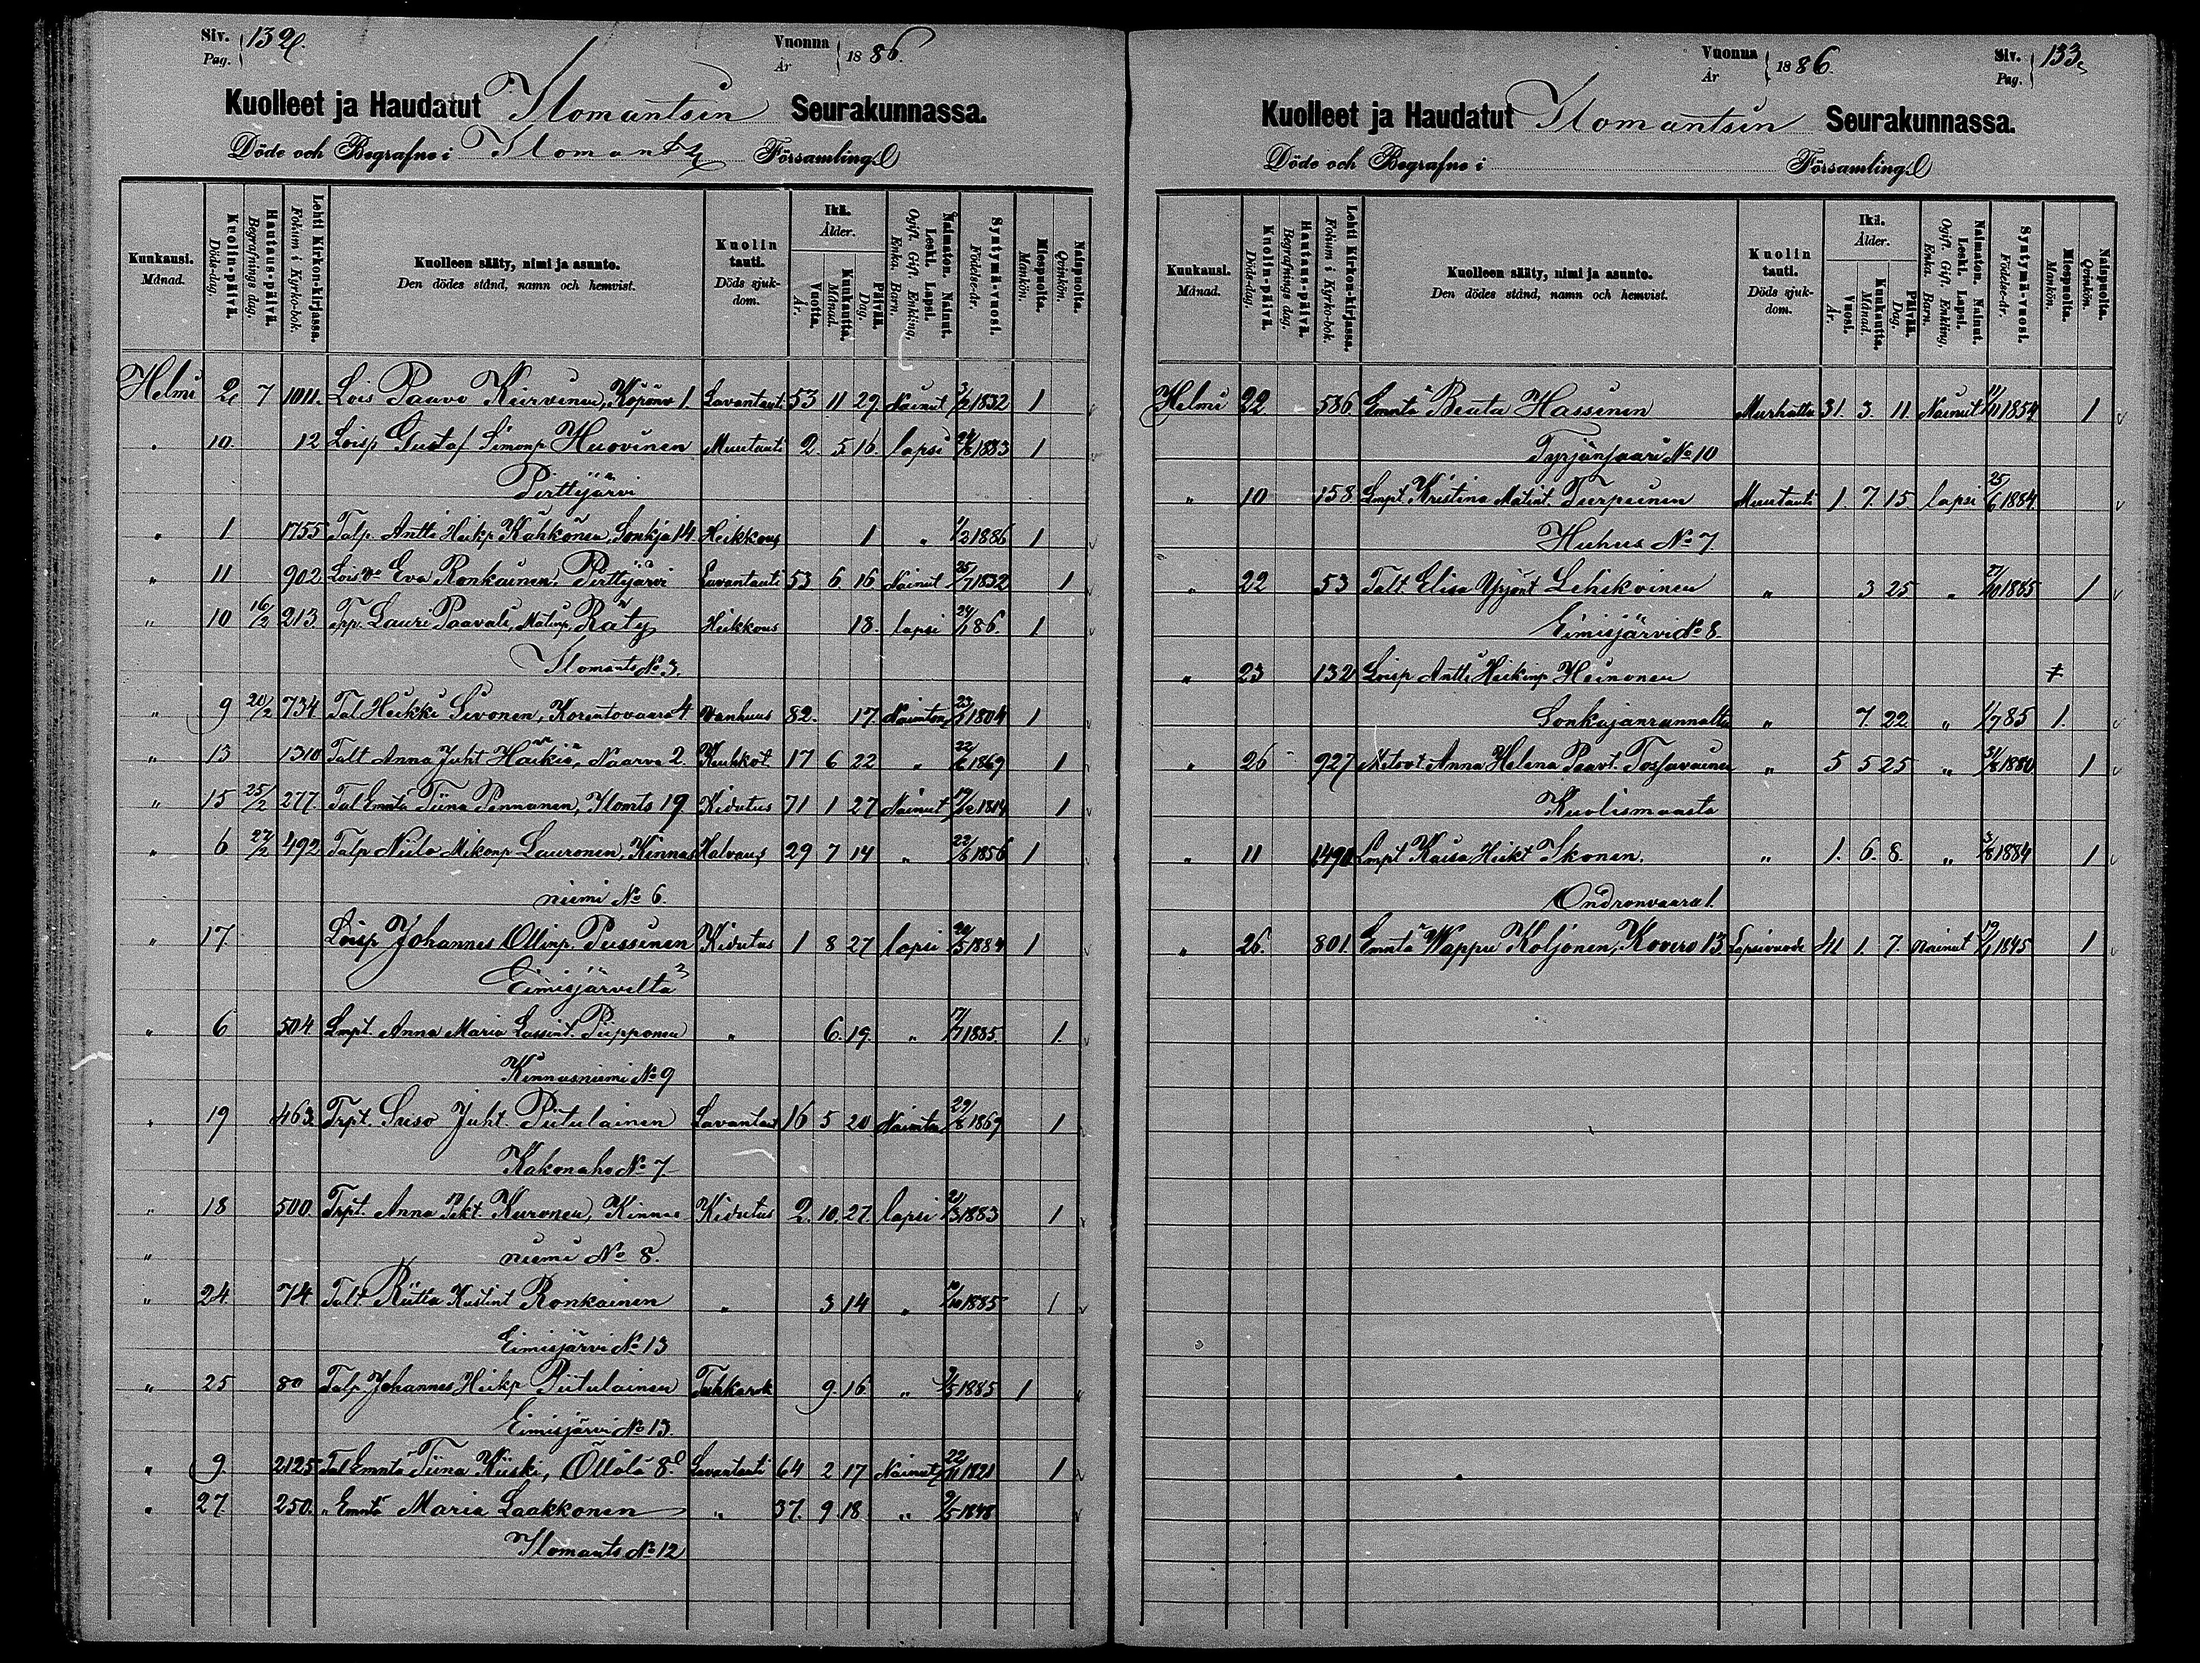 Siv. Pag. 132. Vuonna År 1886.
Kuolleet ja Haudatut Ilomantsin Seurakunnassa.
Döde och Begrafne i Ilomants Församling.
Kuukausi. Månad. Kuolin-päivä. Döds-dag. Hautaus-päivä. Begrafnings dag. Lehti Kirkon-kirjassa. Folium i Kyrko-bok. Kuolleen sääty, nimi ja asunto. Den dödes stånd, namn och hemvist. Kuolin tauti. Döds sjuk-dom. Ikä. Ålder. Vuotta. År. Kuukautta. Månad. Päivää. Dag. Naimaton. Nainut. Leski. Lapsi. Ogift. Gift. Enkling, Enka. Barn. Syntymä-vuosi. Födelse-år. Miespuolta. Mankön. Naispuolta. Qvinkön.
Helmi 2 7 1011. Lois Paavo Kiirvinen, Köpönv 1. Lavantauti 53 11 29. Nainut 3/2 1832 1
" 10. 12 Loisp Gustaf Simonp Huovinen Muutauti 2 5 16. lapsi 24/8 1883 1
Pirttijärvi
" 1 1755 Talp. Antti Heikp Kähkönen Sonkja 14. Heikkous 1 " 1/2 1886 1
" 11 902 Lois Eva Ronkainen, Pirttijärvi Lavantauti 53. 6 16. Nainut 25/7 1832 1
" 10 16/2 213. Lauri Paavali, Matinp. Räty Heikkous 18. lapsi 24/1 86. 1
Ilomants No 3.
" 9 20/2 734 Tal Heikki Sivonen, Korentovaara 4 Vanhuus 82. 17. Naimaton 23/1 1804 1
" 13 1310 Talt Anna Juht Häikiä, Naarva 2. Keuhkot. 17 6 22 " 22/7 1869 1
" 15 25/2 277. Tal Emntä Tiina Pennanen, Ilomts 19 Kidutus 71 1 27 Nainut 19/12 1814 1
" 6 27/2 492 Talp Niilo Mikonp Lauronen, Kinnas Halvaus 29 7 14 " 22/6 1856 1
niemi No 6.
" 17. Loisp Johannes Ollinp. Pussinen Kidutus 1 8 27 lapsi 20/5 1884 1
Eimisjärveltä
" 6 504. Lmpt. Anna Maria Lassint. Piipponen " 6. 19. " 17/7 1885. 1.
Kinnasniemi No 9
" 19 463. Trpt. Suso Juht. Piitulainen Lavantaut 16 5 20 Naimta 29/8 1869 1
Kakonaho No 7
" 18 500. Trpt. Anna Pekt. Kuronen, Kinnas Kidutus 2. 10. 27. lapsi 21/3 1883 1
" niemi No 8.
" 24. 74. Talt. Riitta Kustint Ronkainen " 3 14 " 10/10 1885 1
Eimisjärvi No 13
" 25 80 Talp Johannes Heikp Piitulainen Tuhkarok 9. 16. " 9/5 1885 1
Eimisjärvi No 13.
" 9. 2125 Tal Emntä Tiina Kiiski, Öllölä 8. Lavantauti 64 2 17 Nainut 22/11 1821 1
" 27. 250. " Emntä Maria Laakkonen " 37. 9. 18. " 9/5 1848
Ilomants No 12
Vuonna År 1886. Siv. Pag. 133
Kuolleet ja Haudatut Ilomantsin Seurakunnassa.
Döde och Begrafne i Församling.
Kuukausi. Månad. Kuolin-päivä. Döds-dag. Hautaus-päivä. Begrafnings dag. Lehti Kirkon-kirjassa. Folium i Kyrko-bok. Kuolleen sääty, nimi ja asunto. Den dödes stånd, namn och hemvist. Kuolin tauti. Döds sjuk-dom. Ikä. Ålder. Vuosi. År. Kuukautta. Månad. Päivää. Dag. Naimaton. Nainut. Leski. Lapsi. Ogift. Gift. Enkling, Enka. Barn. Syntymä-vuosi. Födelse-år. Miespuolta. Mankön. Naispuolta. Qvinkön.
Helmi 22 536 Emntä Beata Hassinen Murhattu 31. 3. 11. Nainut 11/11 1854 1
Tyrjänsaari No 10
" 10 158 Lmpt. Kristina Matint. Turpeinen Muutauti 1. 7. 15. lapsi 25/6 1884.
Huhus No 7.
" 22 53 Talt. Elisa Yrjönt Lehikoinen " 3 25 " 27/10 1885 1
Eimisjärvi No 8.
" 23 132 Loisp Antti Heikinp Heinonen
Sonkajanrannalta " 7. 22 " 1/7 85 1.
" 26 927 Metovt. Anna Helena Paavt. Tossavainen " 5 5 25 " 31/8 1880 1
Kuolismaasta
" 11 1490 Lmpt Kaisa Heikt Ikonen. " 1. 6. 8. " 3/8 1884 1
Ondronvaara 1.
" 26. 801. Emntä Wappu Koljonen, Kovero 13. Lapsivuode 41 1. 7. Nainut 19/1 1845 1